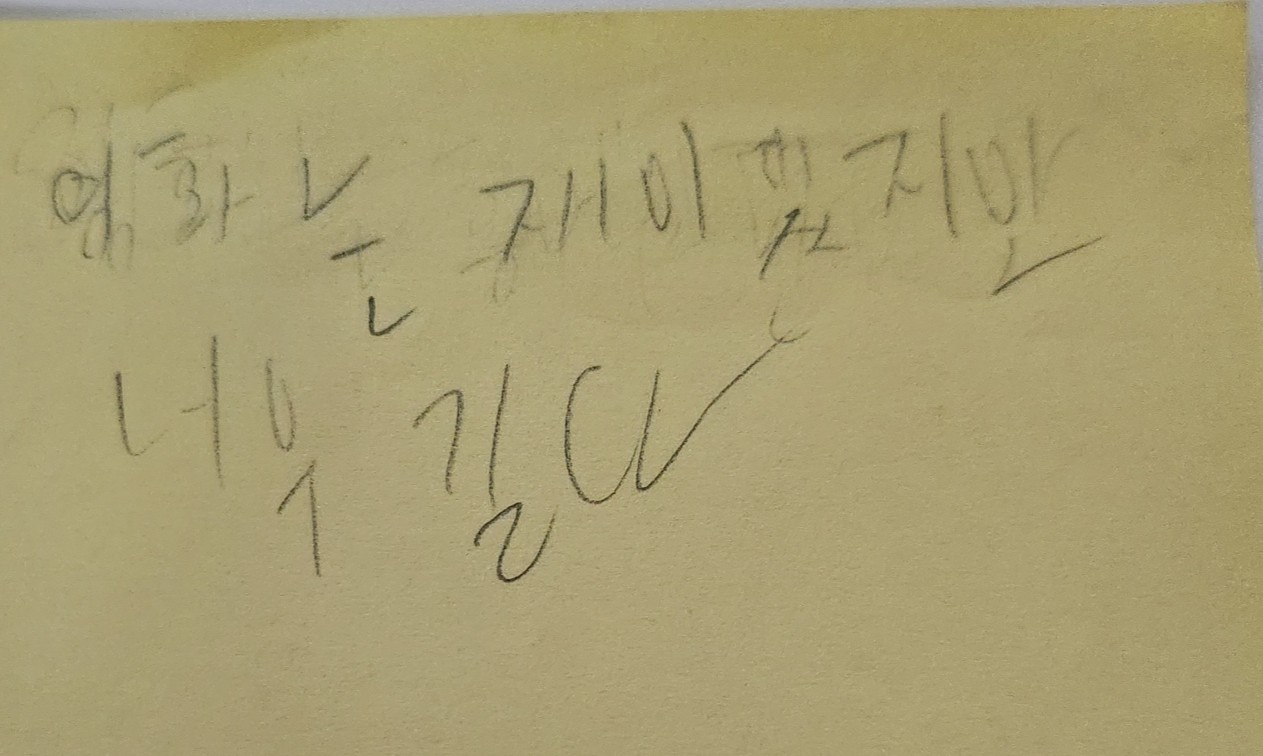 영화는 재미있지만
너무 길다